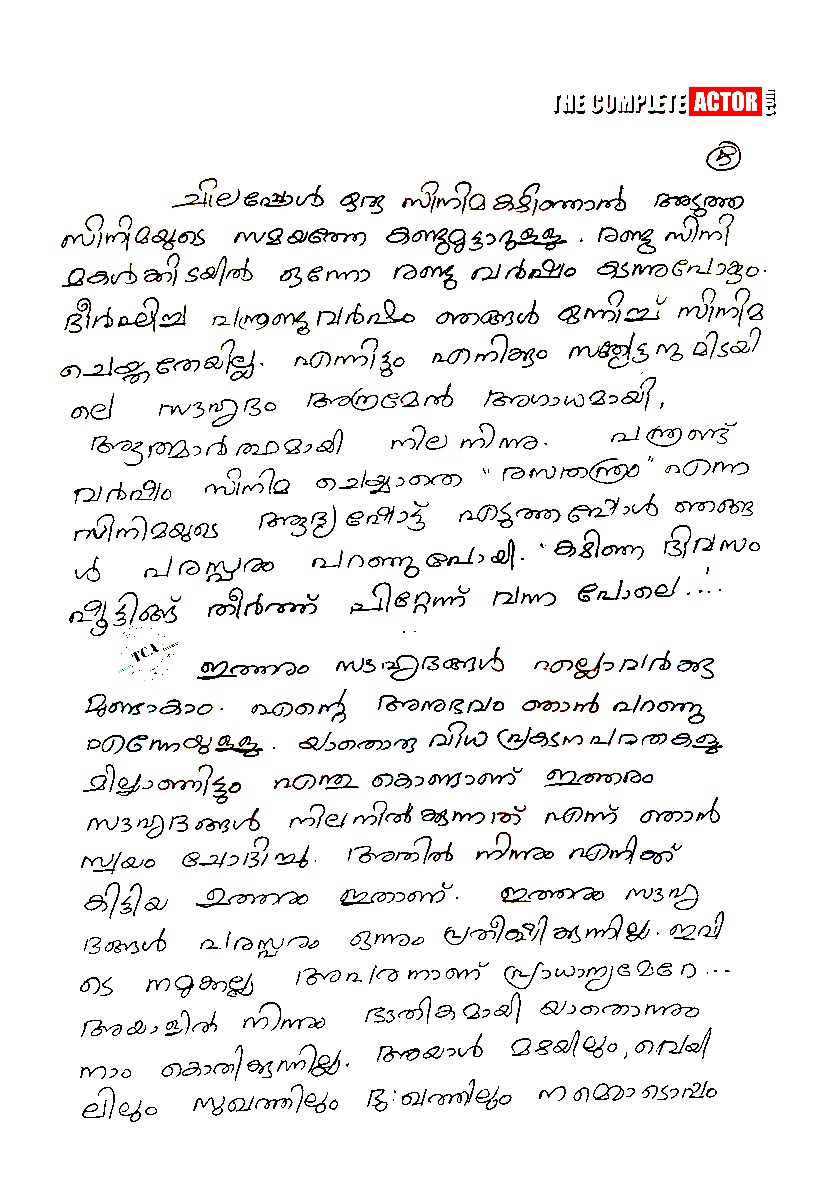 THE COMPLETE ACTOR .com
5
ചിലപ്പോൾ ഒരു സിനിമകഴിഞ്ഞാൽ അടുത്ത
സിനിമയുടെ സമയത്തേ കണ്ടുമുട്ടാറുള്ളൂ. രണ്ടു സിനി
മകൾക്കിടയിൽ ഒന്നോ രണ്ടു വർഷം കടന്നുപോകും.
ദീർഘിച്ച പന്ത്രണ്ടുവർഷം ഞങ്ങൾ ഒന്നിച്ച് സിനിമ
ചെയ്തതേയില്ല. എന്നിട്ടും എനിക്കും സത്യേട്ടനുമിടയി
ലെ സൗഹൃദം അത്രമേൽ അഗാധമായി,
ആത്മാർത്ഥമായി നിലനിന്നു. പന്ത്രണ്ട്
വർഷം സിനിമ ചെയ്യാതെ "രസതന്ത്രം" എന്ന
സിനിമയുടെ ആദ്യഷോട്ട് എടുത്തപ്പോൾ ഞങ്ങ
ൾ പരസ്പരം പറഞ്ഞുപോയി. "കഴിഞ്ഞ ദിവസം
ഷൂട്ടിങ്ങ് തീർത്ത് പിറ്റേന്ന് വന്ന പോലെ....
TCA
ഇത്തരം സൗഹൃദങ്ങൾ എല്ലാവർക്കു
മുണ്ടാകാം. എന്റെ അനുഭവം ഞാൻ പറഞ്ഞു
എന്നേയുള്ളൂ. യാതൊരു വിധ പ്രകടനപരതകളു
മില്ലാഞ്ഞിട്ടും എന്തു കൊണ്ടാണ് ഇത്തരം
സൗഹൃദങ്ങൾ നിലനിൽക്കുന്നത് എന്ന് ഞാൻ
സ്വയം ചോദിച്ചു. അതിൽ നിന്നും എനിക്ക്
കിട്ടിയ ഉത്തരം ഇതാണ്. ഇത്തരം സൗഹൃ
ദങ്ങൾ പരസ്പരം ഒന്നും പ്രതീക്ഷിക്കുന്നില്ല. ഇവി
ടെ നമുക്കല്ല അപരനാണ് പ്രാധാന്യമേറെ...
അയാളിൽ നിന്നും ഭൗതികമായി യാതൊന്നും
നാം കൊതിക്കുന്നില്ല. അയാൾ മഴയിലും, വെയി
ലിലും സുഖത്തിലും ദുഃഖത്തിലും നമ്മൊടൊപ്പം